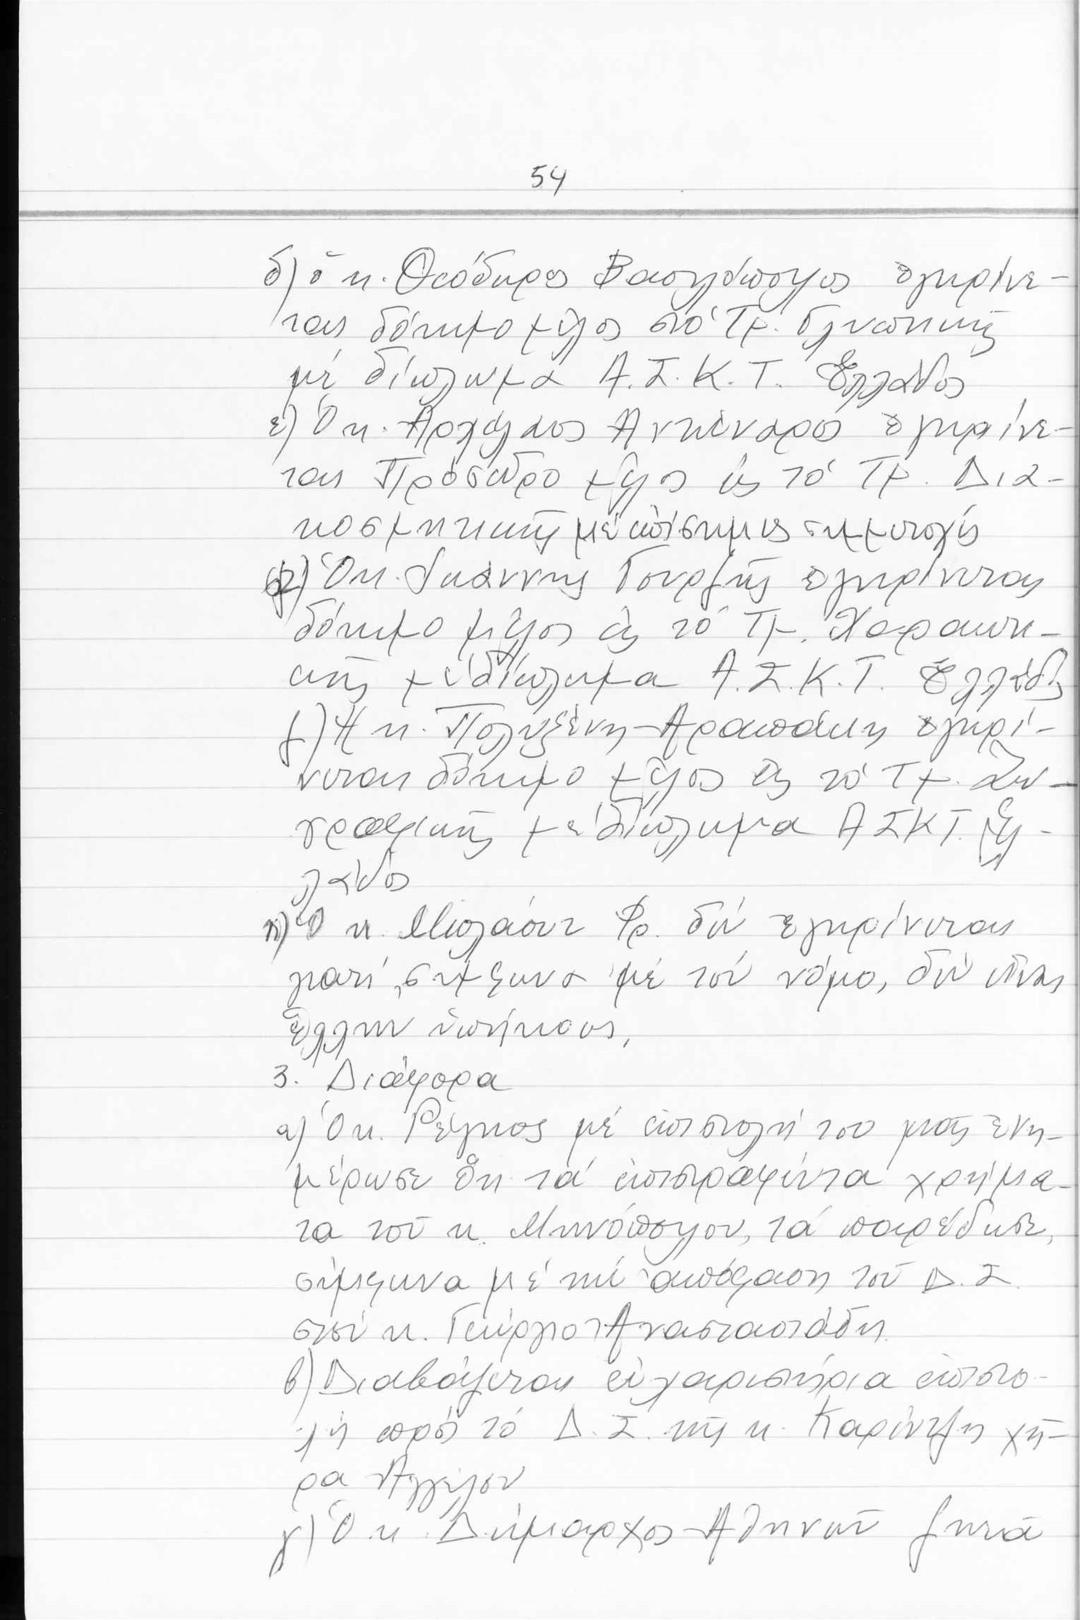 54
δ) ὁ κ. Θεόδωρος Βασιλόπουλος ἐγκρίνε-
ται δόκιμο μέλος στό Τμ. Γλυπτικῆς
μέ δίπλωμα Α.Σ.Κ.Τ. Ἑλλάδος
ε) Ὁ κ. Ἀρχέλαος Ἀντώναρος ἐγκρίνε-
ται Πρόσεδρο μέλος εἰς τό Τμ. Δια-
κοσμητικῆς μέ ἐπίσημες συμμετοχές
στ) Ὁ κ. Ἰωάννης Γουρζῆς ἐγκρίνεται
δόκιμο μέλος εἰς τό Τμ. Χαρακτι-
κῆς μέ δίπλωμα Α.Σ.Κ.Τ. Ἑλλάδος
ζ) Ἡ κ. Πολυξένη Ἀραπάκη ἐγκρί-
νεται δόκιμο μέλος εἰς τό Τμ. Ζω-
γραφικῆς μέ δίπλωμα ΑΣΚΤ. Ἑλ-
λάδος
η) Ὁ κ. Φρ. δέν ἐγκρίνεται
γιατί, σύμφωνα μέ τόν νόμο, δέν εἶναι
Ἕλλην ὑπήκοος,
3. Διάφορα
α) Ὁ κ. Ρέγκος μέ ἐπιστολή του μᾶς ἐνη-
μέρωσε ὅτι τά ἐπιστραφέντα χρήμα-
τα τοῦ κ. τά παρέδωσε,
σύμφωνα μέ τήν ἀπόφαση τοῦ Δ.Σ.
στόν κ. Γεώργιο Ἀναστασιάδη
β) Διαβάζεται εὐχαριστήρια ἐπιστο-
λή πρός τό Δ.Σ. τῆς κ. χή-
ρα Ἀγγέλου
γ) Ὁ κ. Δήμαρχος Ἀθηνῶν ζητᾶ